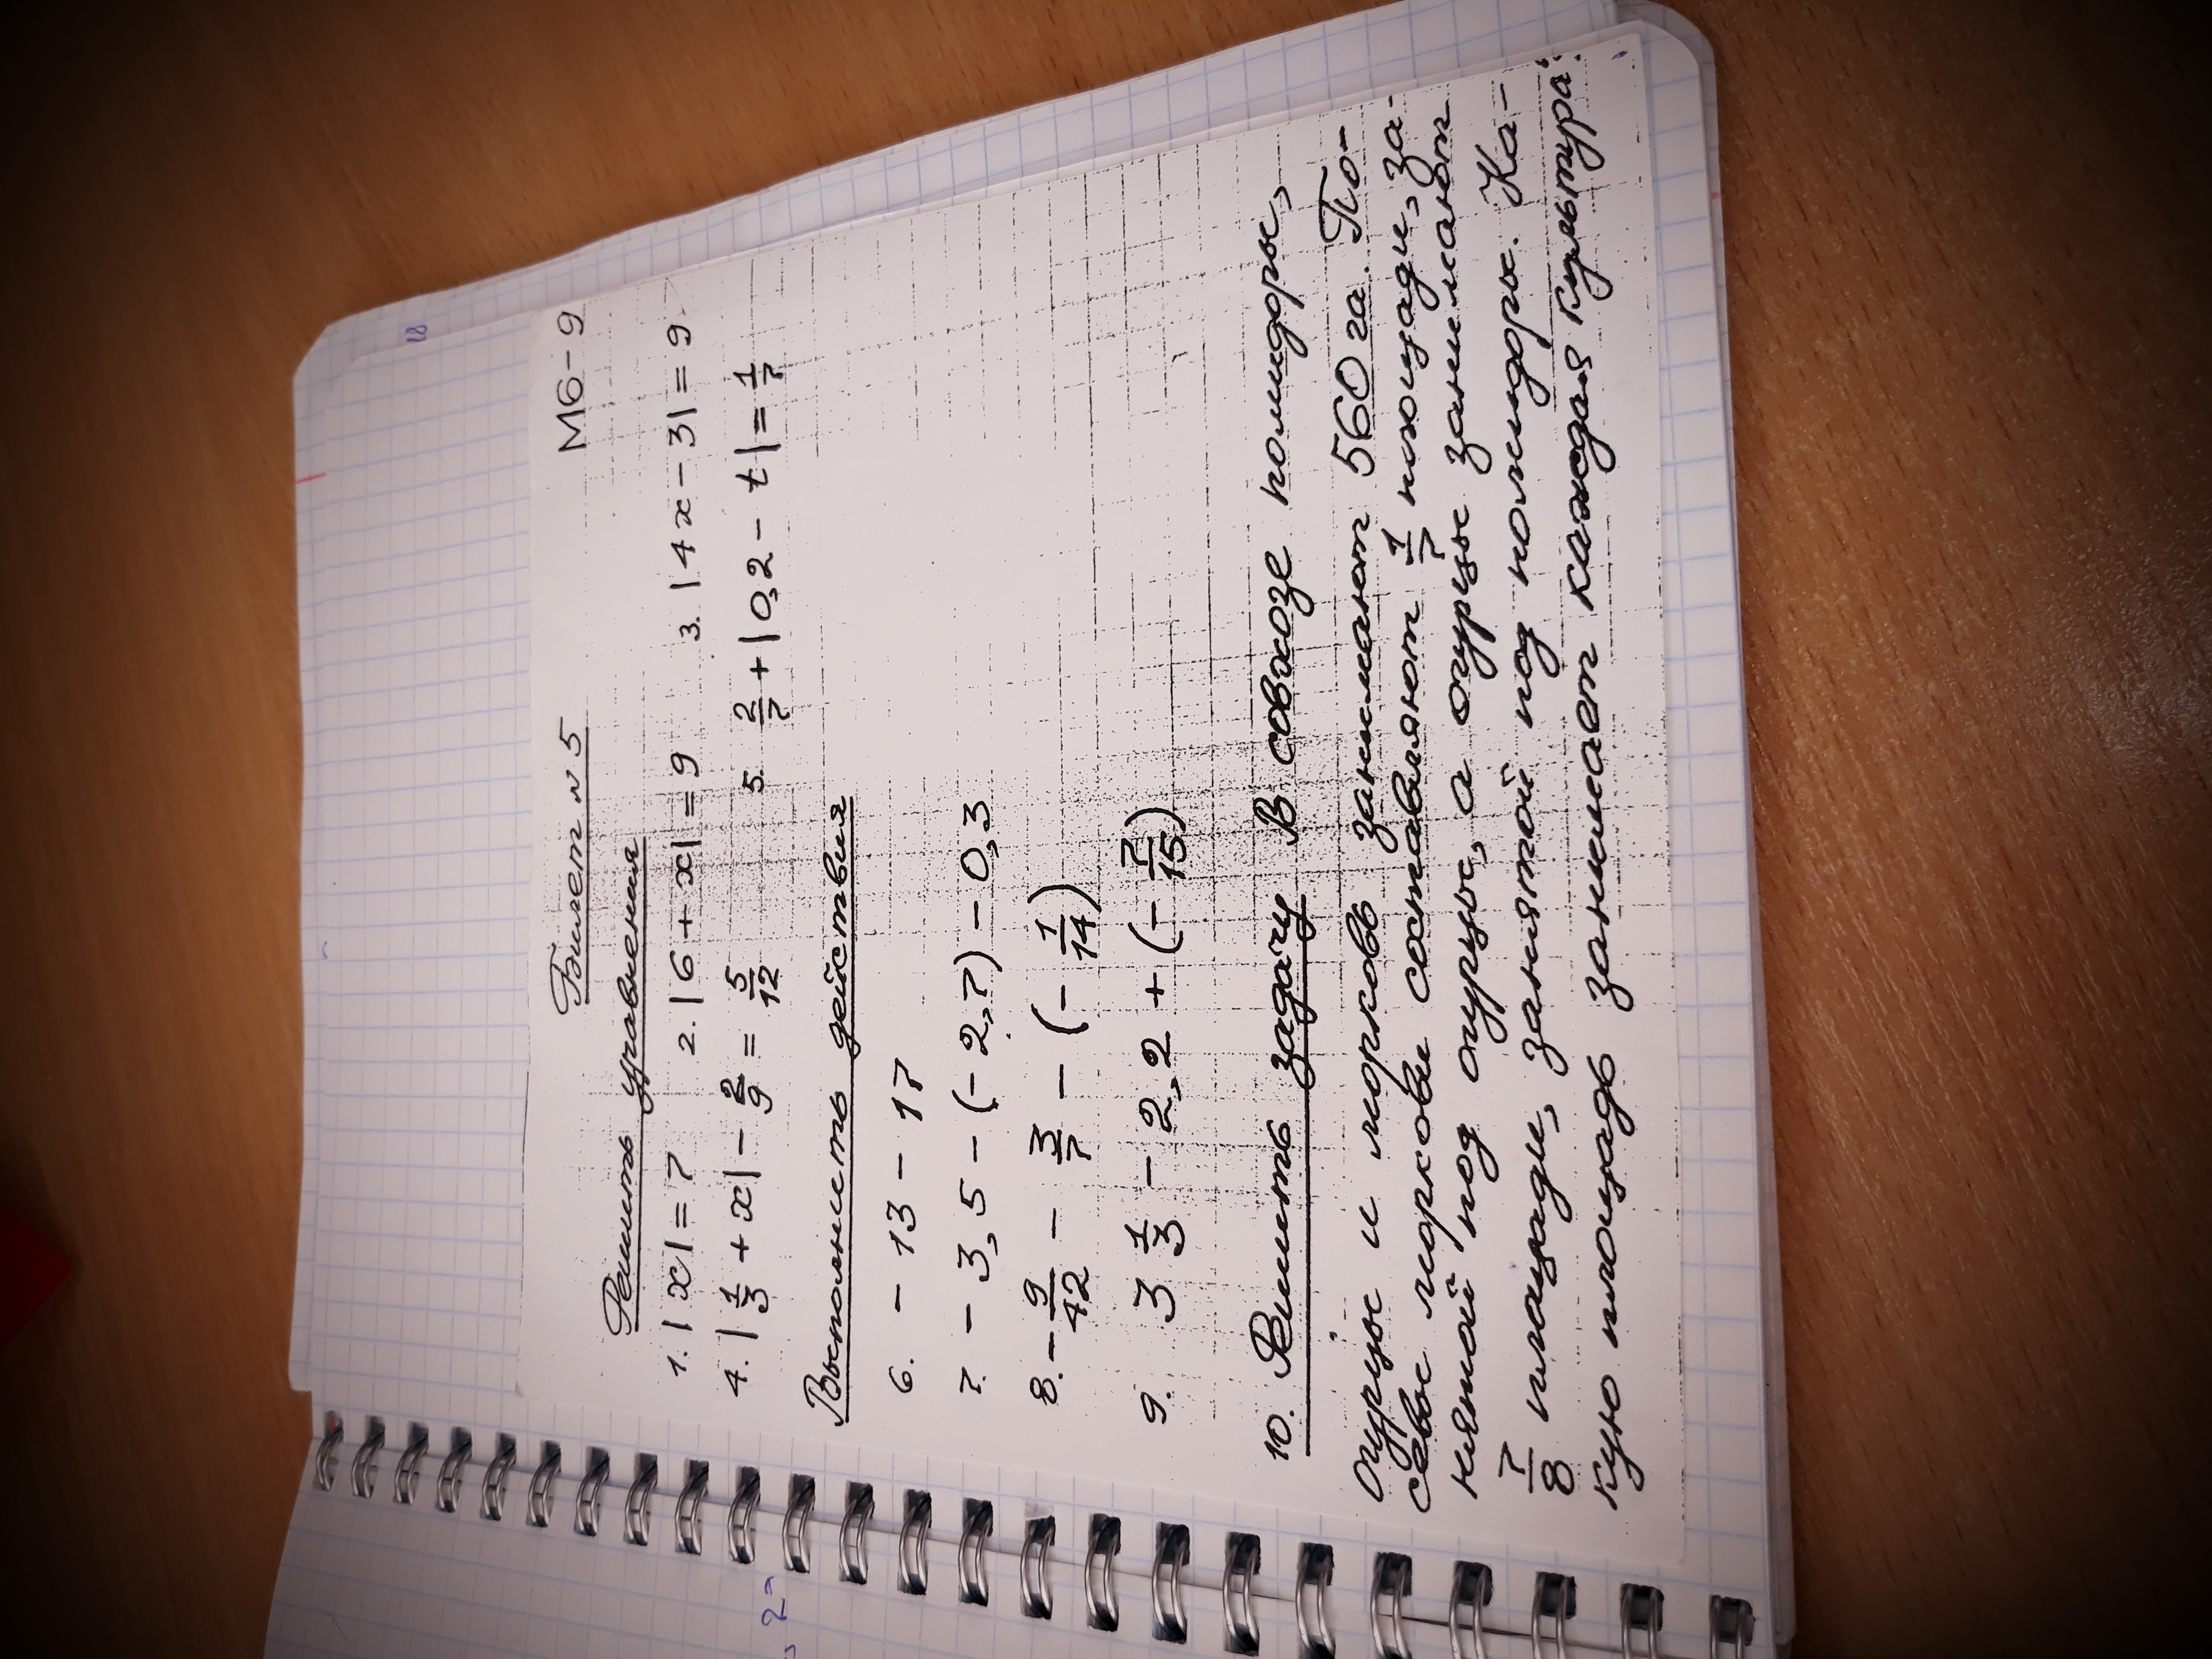 18
М6-9
Билет №5
Решить уравнения
1. |x| = 7 2. |6 + x| = 9 3. |4x - 3| = 9
4. |1/3 + x| - 2/9 = 5/12 5. 2/7 + |0,2 - t| = 1/7
Выполнить действия
6. - 13 - 17
7. - 3,5 - (- 2,7) - 0,3
8. - 9/42 - 3/7 - (- 1/14)
9. 3 1/3 - 2,2 + (- 7/15)
10. Решить задачу В совхозе помидоры,
огурцы и морковь занимают 560 га. По-
севы моркови составляют 1/7 площади, за-
нятой под огурцы, а огурцы занимают
7/8 площади, занятой под помидоры. Ка-
кую площадь занимает каждая культура?